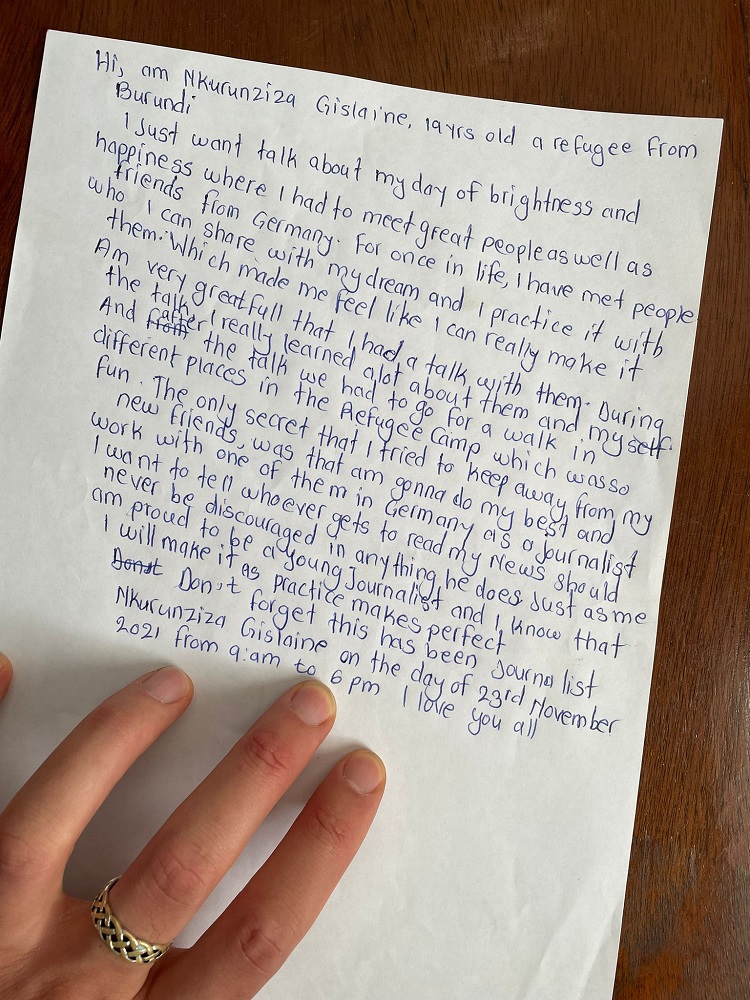 Hi, am Nkurunziza Gislaine, 19yrs old a refugee from
Burundi
I Just want talk about my day of brightness and
happiness where I had to meet great people as well as
friends from Germany. For once in life, I have met people
who I can share with my dream and I practice it with
them. Which made me feel like I can really make it
Am very greatfull that I had a talk with them. During
the talk, I really learned alot about them and myself.
And from after the talk we had to go for a walk in
different places in the Refugee Camp which was so
fun. The only secret that I tried to keep away from my
new friends, was that am gonna do my best and
work with one of them in Germany as a Journalist
I want to tell whoever gets to read my News should
never be discouraged in anything he does Just as me
am proud to be a young Journalist and I know that
I will make it as practice makes perfect
Don't forget this has been Journalist
Nkurunziza Gislaine on the day of 23rd November
2021 from 9:am to 6pm I love you all